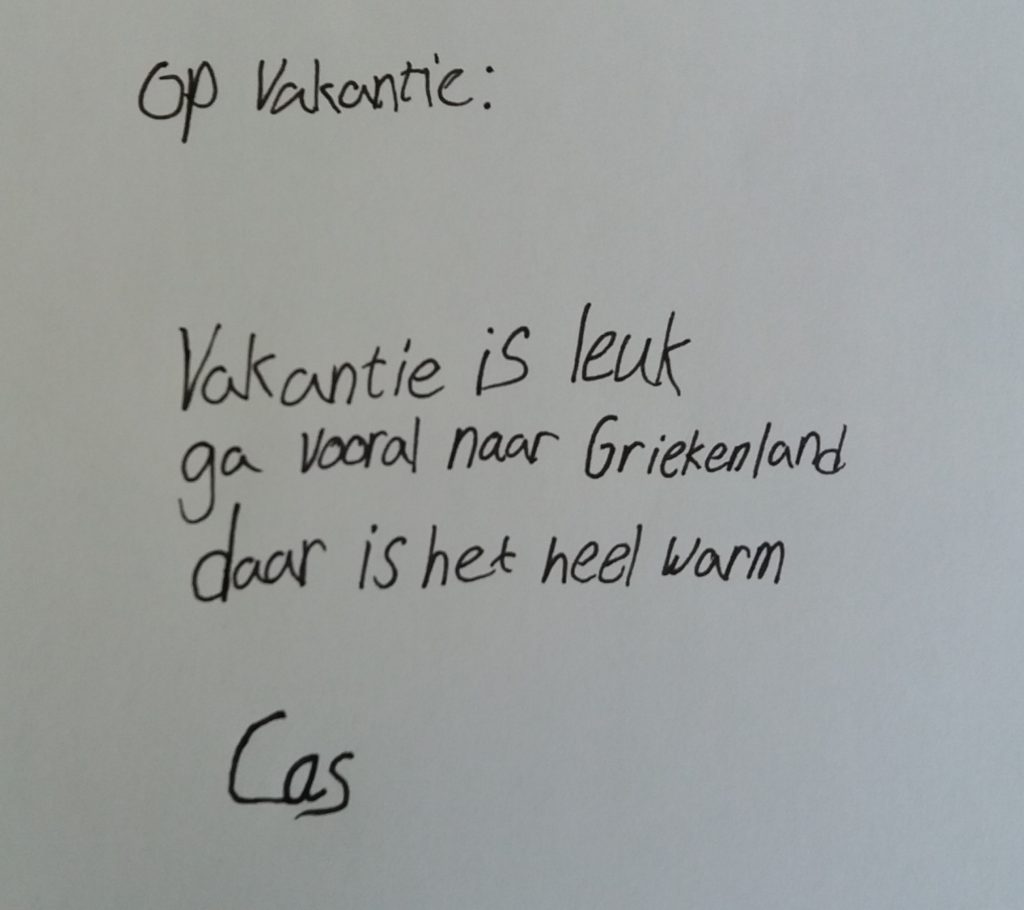 Op Vakantie:
Vakantie is leuk
ga vooral naar Griekenland
daar is het heel warm
Cas